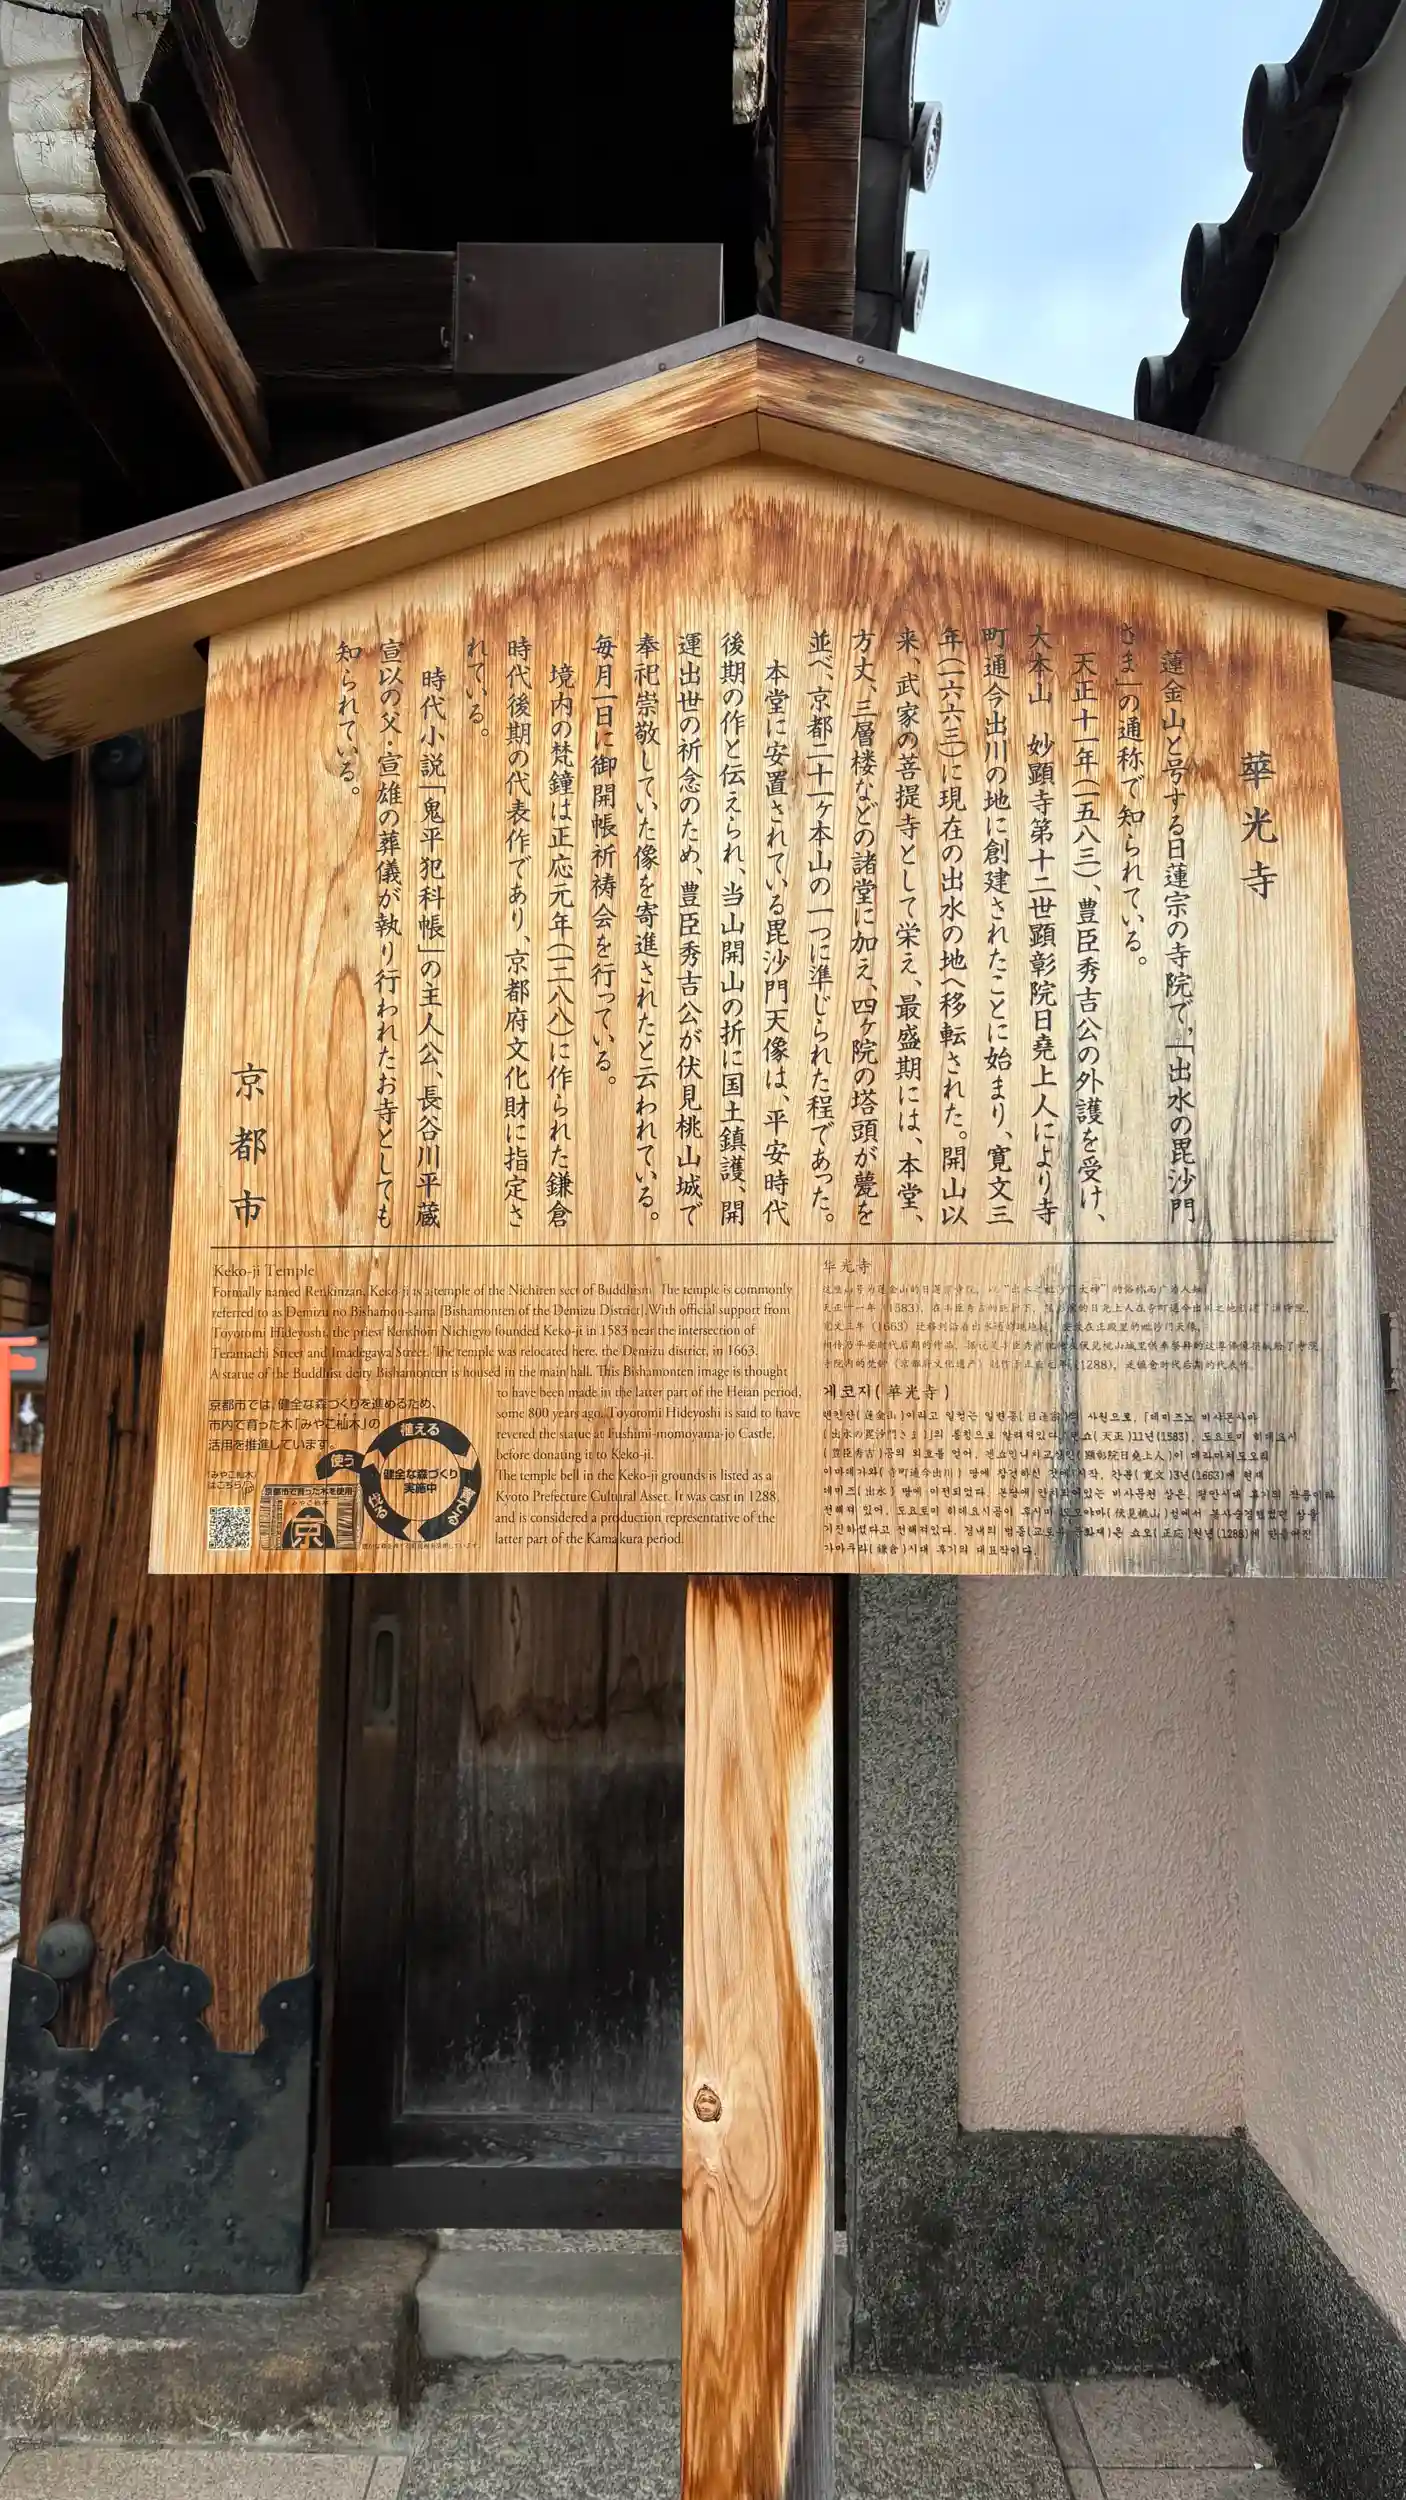 華光寺
蓮金山と号する日蓮宗の寺院で、「出水の毘沙門
さま」の通称で知られている。
天正十一年(一五八三)、豊臣秀吉公の外護を受け、
大本山　妙顕寺第十二世顕彰院日堯上人により寺
町通今出川の地に創建されたことに始まり、寛文三
年(一六六三)に現在の出水の地へ移転された。開山以
来、武家の菩提寺として栄え、最盛期には、本堂、
方丈、三層楼などの諸堂に加え、四ヶ院の塔頭が甍を
並べ、京都二十一ヶ本山の一つに準じられた程であった。
本堂に安置されている毘沙門天像は、平安時代
後期の作と伝えられ、当山開山の折に国土鎮護、開
運出世の祈念のため、豊臣秀吉公が伏見桃山城で
奉祀崇敬していた像を寄進されたと云われている。
毎月一日に御開帳祈祷会を行っている。
境内の梵鐘は正応元年(一二八八)に作られた鎌倉
時代後期の代表作であり、京都府文化財に指定さ
れている。
時代小説「鬼平犯科帳」の主人公、長谷川平蔵
宣以の父・宣雄の葬儀が執り行われたお寺としても
知られている。
京都市
Keko-ji Temple
Formally named Renkinzan, Keko-ji is a temple of the Nichiren sect of Buddhism. The temple is commonly
referred to as Demizu no Bishamon-sama [Bishamonten of the Demizu District]. With official support from
Toyotomi Hideyoshi, the priest Kenshoin Nichigyo founded Keko-ji in 1583 near the intersection of
Teramachi Street and Imadegawa Street. The temple was relocated here, the Demizu district, in 1663.
A statue of the Buddhist deity Bishamonten is housed in the main hall. This Bishamonten image is thought
to have been made in the latter part of the Heian period,
some 800 years ago. Toyotomi Hideyoshi is said to have
revered the statue at Fushimi-momoyama-jo Castle,
before donating it to Keko-ji.
The temple bell in the Keko-ji grounds is listed as a
Kyoto Prefecture Cultural Asset. It was cast in 1288,
and is considered a production representative of the
latter part of the Kamakura period.
京都市では、健全な森づくりを進めるため、
市内で育った木「みやこ杣木」の
活用を推進しています。
「みやこ杣木」
はこちら
植える
育てる
伐る
使う
健全な森づくり
実施中
京都市で育った木を使用
みやこ杣木
京
华光寺
天正十一年(1583)，
宽文三年(1663)
(1288)，
게코지(華光寺)
렌킨잔(蓮金山)이라고 일컫는 일련종(日蓮宗)의 사원으로,
(出水の毘沙門さま)
(豊臣秀吉)공의 외호를 얻어,
(寺町通今出川)
데미즈(出水)
가마쿠라(鎌倉)시대 후기의 대표작이다.